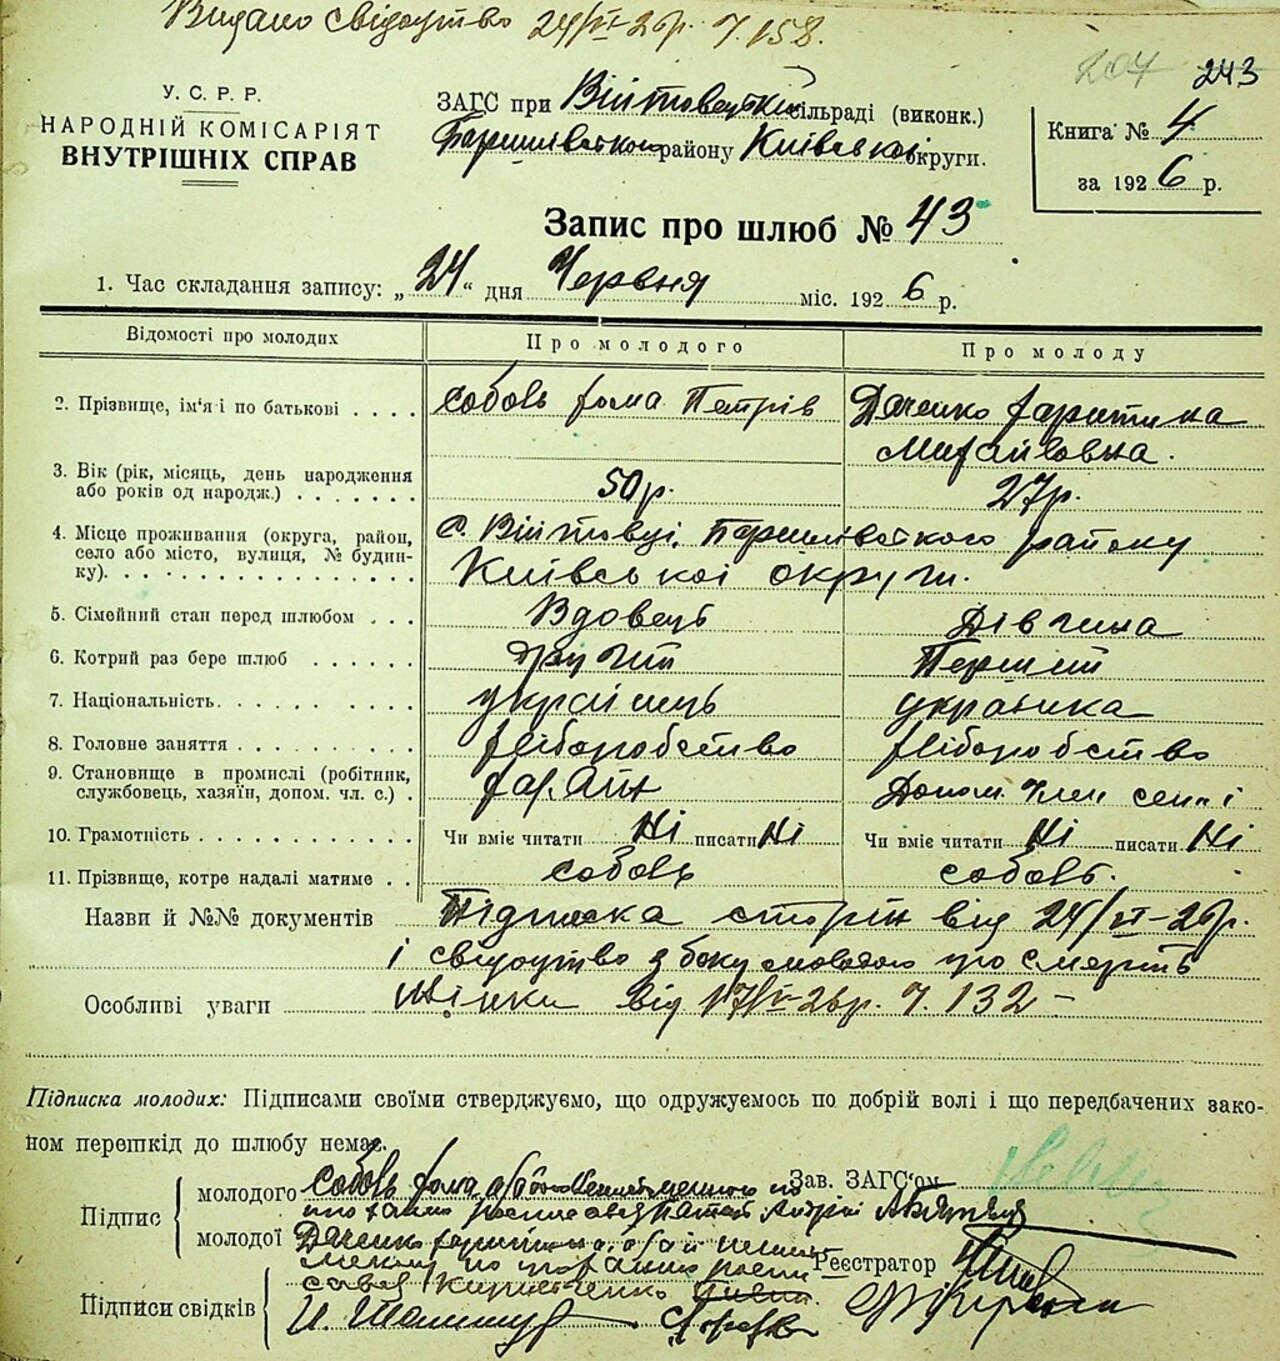 Видано свідоцтво 24/VI-26р. Ч. 158.
207 243
У. С. Р. Р.
НАРОДНІЙ КОМІСАРІЯТ
ВНУТРІШНІХ СПРАВ
ЗАГС при Війтовецькій сільраді (виконк.)
Баришівського району Київської округи.
Книга № 4
за 1926 р.
Запис про шлюб № 43
1. Час складання запису: „24“ дня Червня міс. 1926 р.
Відомості про молодих
Про молодого
Про молоду
2. Прізвище, ім'я і по батькові . . . . Соболь Хома Петрів Дяченко Харитина
Михайловна.
3. Вік (рік, місяць, день народження
або років од народж.) . . . . . . . 50р. 27р.
4. Місце проживання (округа, район, с. Війтовці, Баришівського району
село або місто, вулиця, № будин-
ку). . . . . . . . . . . . . . . . . Київської округи.
5. Сімейний стан перед шлюбом . . . Вдовець Дівчина
6. Котрий раз бере шлюб . . . . . . другий Перший
7. Національність. . . . . . . . . . українець українка
8. Головне заняття . . . . . . . . . . хліборобство хліборобство
9. Становище в промислі (робітник,
службовець, хазяїн, допом. чл. с.) . хазяїн Допом. член семьї
10. Грамотність . . . . . . . . . . . . Чи вміє читати Ні писати Ні Чи вміє читати Ні писати Ні
11. Прізвище, котре надалі матиме . . Соболь Соболь.
Назви й №№ документів Підписка сторін від 24/VI-26р.
і свідоцтво з боку молодого про смерть
Особливі уваги жінки від 17/V-26р. Ч. 132 -
Підписка молодих: Підписами своїми стверджуємо, що одружуємось по добрій волі і що передбачених зако-
ном перешкід до шлюбу немає.
Підпис
молодого Соболь Хома, а за
Зав. ЗАГС'ом
молодої Дяченко Харитина, а за
Реєстратор
Підписи свідків